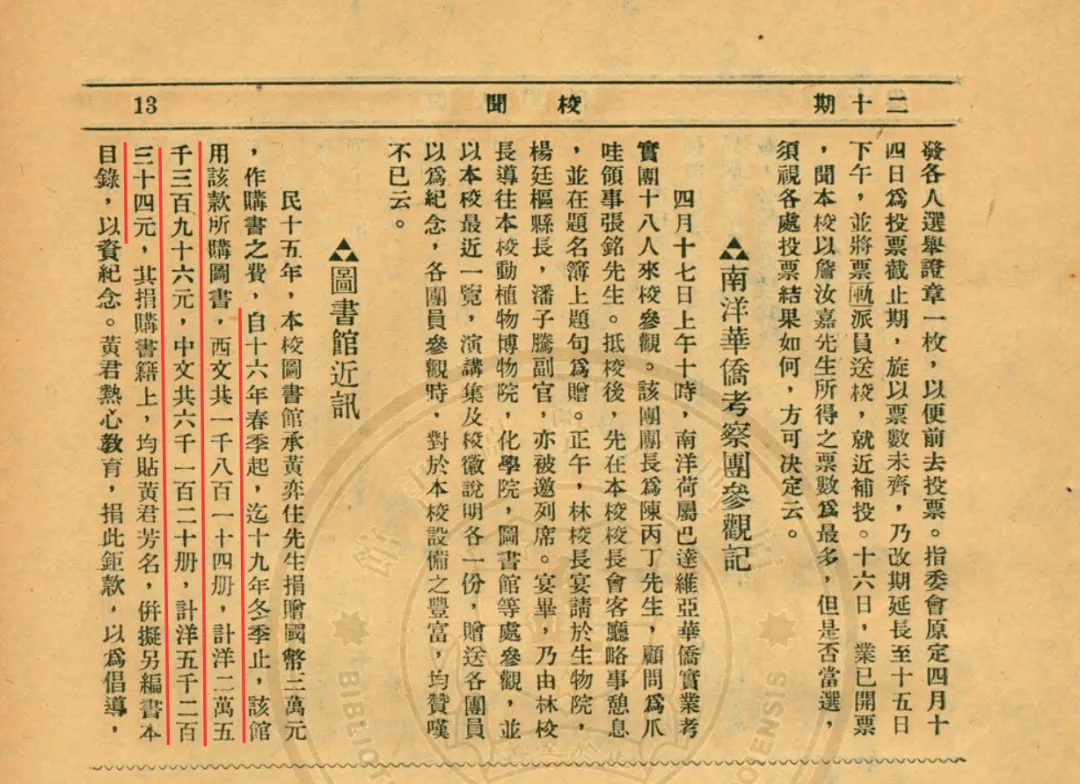 二十期
校聞
13
發各人選舉證章一枚，以便前去投票。指委會原定四月十
四日爲投票截止期，旋以票數未齊，乃改期延長至十五日
下午，並將票匭派員送校，就近補投。十六日，業已開票
，聞本校以詹汝嘉先生所得之票數爲最多，但是否當選，
須視各處投票結果如何，方可決定云。
南洋華僑考察團參觀記
四月十七日上午十時，南洋荷屬巴達維亞華僑實業考
察團十八人來校參觀。該團團長爲陳丙丁先生，顧問爲爪
哇領事張銘先生。抵校後，先在本校校長會客廳略事憩息
，並在題名簿上題句爲贈。正午，林校長宴請於生物院，
楊廷樞縣長，潘子騰副官，亦被邀列席。宴畢，乃由林校
長導往本校動植物博物院，化學院，圖書館等處參觀，並
以本校最近一覽，演講集及校徽說明各一份，贈送各團員
以爲紀念，各團員參觀時，對於本校設備之豐富，均贊嘆
不已云。
圖書館近訊
民十五年，本校圖書館承黃弈住先生捐贈國幣三萬元
，作購書之費，自十六年春季起，迄十九年冬季止，該館
用該款所購圖書，西文共一千八百一十四册，計洋二萬五
千三百九十六元，中文共六千一百二十册，計洋五千二百
三十四元，其捐購書籍上，均貼黃君芳名，併擬另編書本
目錄，以資紀念。黃君熱心教育，捐此鉅款，以爲倡導，
BIBLIO
ENSIS